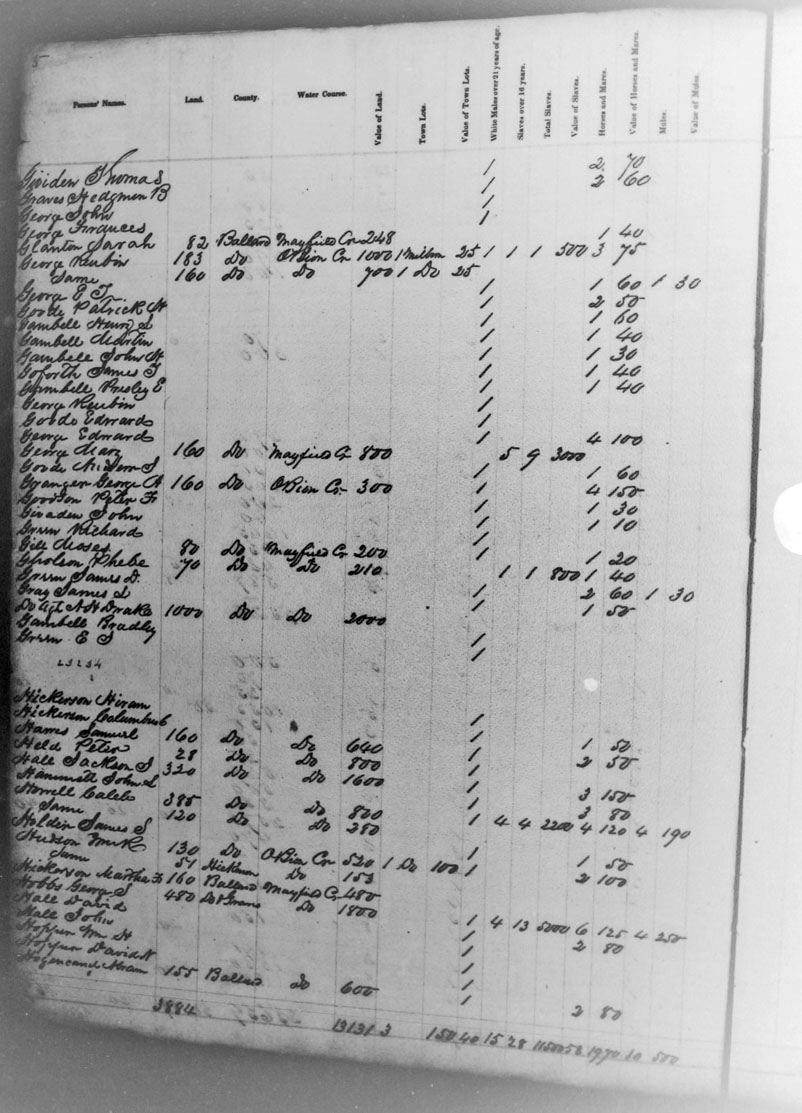 5
Persons' Names. Land. County. Water Course. Value of Land. Town Lots. Value of Town Lots. White Males over 21 years of age. Slaves over 16 years. Total Slaves. Value of Slaves. Horses and Mares. Value of Horses and Mares. Mules. Value of Mules.
Gividen Thomas 1 2 70
Graves Hedgmon B 1 2 60
George John 1
George Frances 1
Glanton Sarah 82 Ballard Mayfield Cr 248 1 40
George Reubin 183 Do OBion Cr 1000 1 Milbrn 25 1 1 1 500 3 75
Same 160 Do Do 700 1 Do 25
George E T 1 1 60 1 30
Goode Patrick H 1 2 50
Gambell Henry L 1 1 60
Gambell Martin 1 1 40
Gambell John H 1 1 30
Goforth James T 1 1 40
Gambell Presley E 1 1 40
George Reubin 1
Goode Edward 1
George Edward 1 4 100
George Mary 160 Do Mayfield Cr 800 5 9 3000
Goode S 1 1 60
Granger George A 160 Do OBion Cr 300 1 4 150
Goodson Peter F 1 1 30
Givaden John 1 1 10
Green Richard 1
Gill Moses 80 Do Mayfield Cr 200 1 1 20
Gholson Phebe 70 Do Do 210 1 1 800 1 40
Green James D. 1 2 60 1 30
Gray James L 1 1 50
Do Agt A H Drake 1000 Do Do 2000
Gambell Bradley 1
Green E S 1
Hickerson Hiram 1
Hickerson Columbus C 1
Harris Samuel 160 Do Do 640 1 1 50
Held Peter 28 Do Do 800 1 2 50
Hale Jackson S 320 Do Do 1600 1
Hammett John L 1 3 150
Horrell Caleb 385 Do Do 800 1 3 80
Same 120 Do Do 280
Holder James S 1 4 4 2200 4 120 4 190
Hudson Wm R 130 Do OBion Cr 520 1 Do 100 1 1 50
Same 51 Hickman Do 153
Hickerson Martha F 160 Ballard Mayfield Cr 480 2 100
Hobbs George S 480 Do & Graves Do 1800
Hale David 1 4 13 5000 6 125 4 250
Hale John 1 2 80
Hopper Wm H 1
Hopper David N 1
Hiram 155 Ballard Do 600 1 2 80
3884 13131 3 150 40 15 28 11500 58 1970 10 500